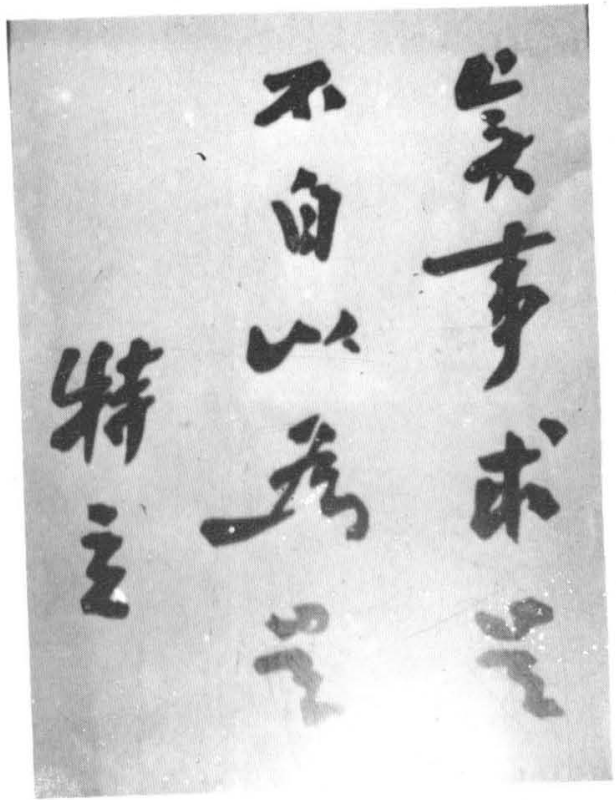 實事求是
不自以為是
特立